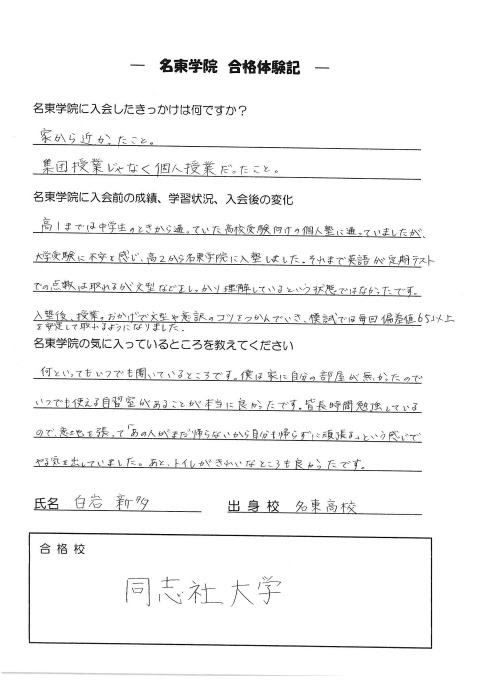 ― 名東学院 合格体験記 ―
名東学院に入会したきっかけは何ですか？
家から近かったこと。
集団授業じゃなく個人授業だったこと。
名東学院に入会前の成績、学習状況、入会後の変化
高1までは中学生のときから通っていた高校受験向けの個人塾に通っていましたが、
大学受験に不安を感じ、高2から名東学院に入塾しました。それまで英語が定期テスト
での点数は取れるが文型などをしっかり理解しているという状態ではなかったです。
入塾後、授業のおかげで文型や英訳のコツをつかんでいき、模試では毎回偏差値65以上
を安定して取れるようになりました。
名東学院の気に入っているところを教えてください
何といってもいつでも開いているところです。僕は家に自分の部屋が無かったので
いつでも使える自習室があることが本当に良かったです。皆長時間勉強している
ので、意地を張って「あの人がまだ帰らないから自分も帰らずに頑張る」という感じで
やる気を出していました。あと、トイレがきれいなところも良かったです。
氏名 白岩 新 出身校 名東高校
合格校
同志社大学